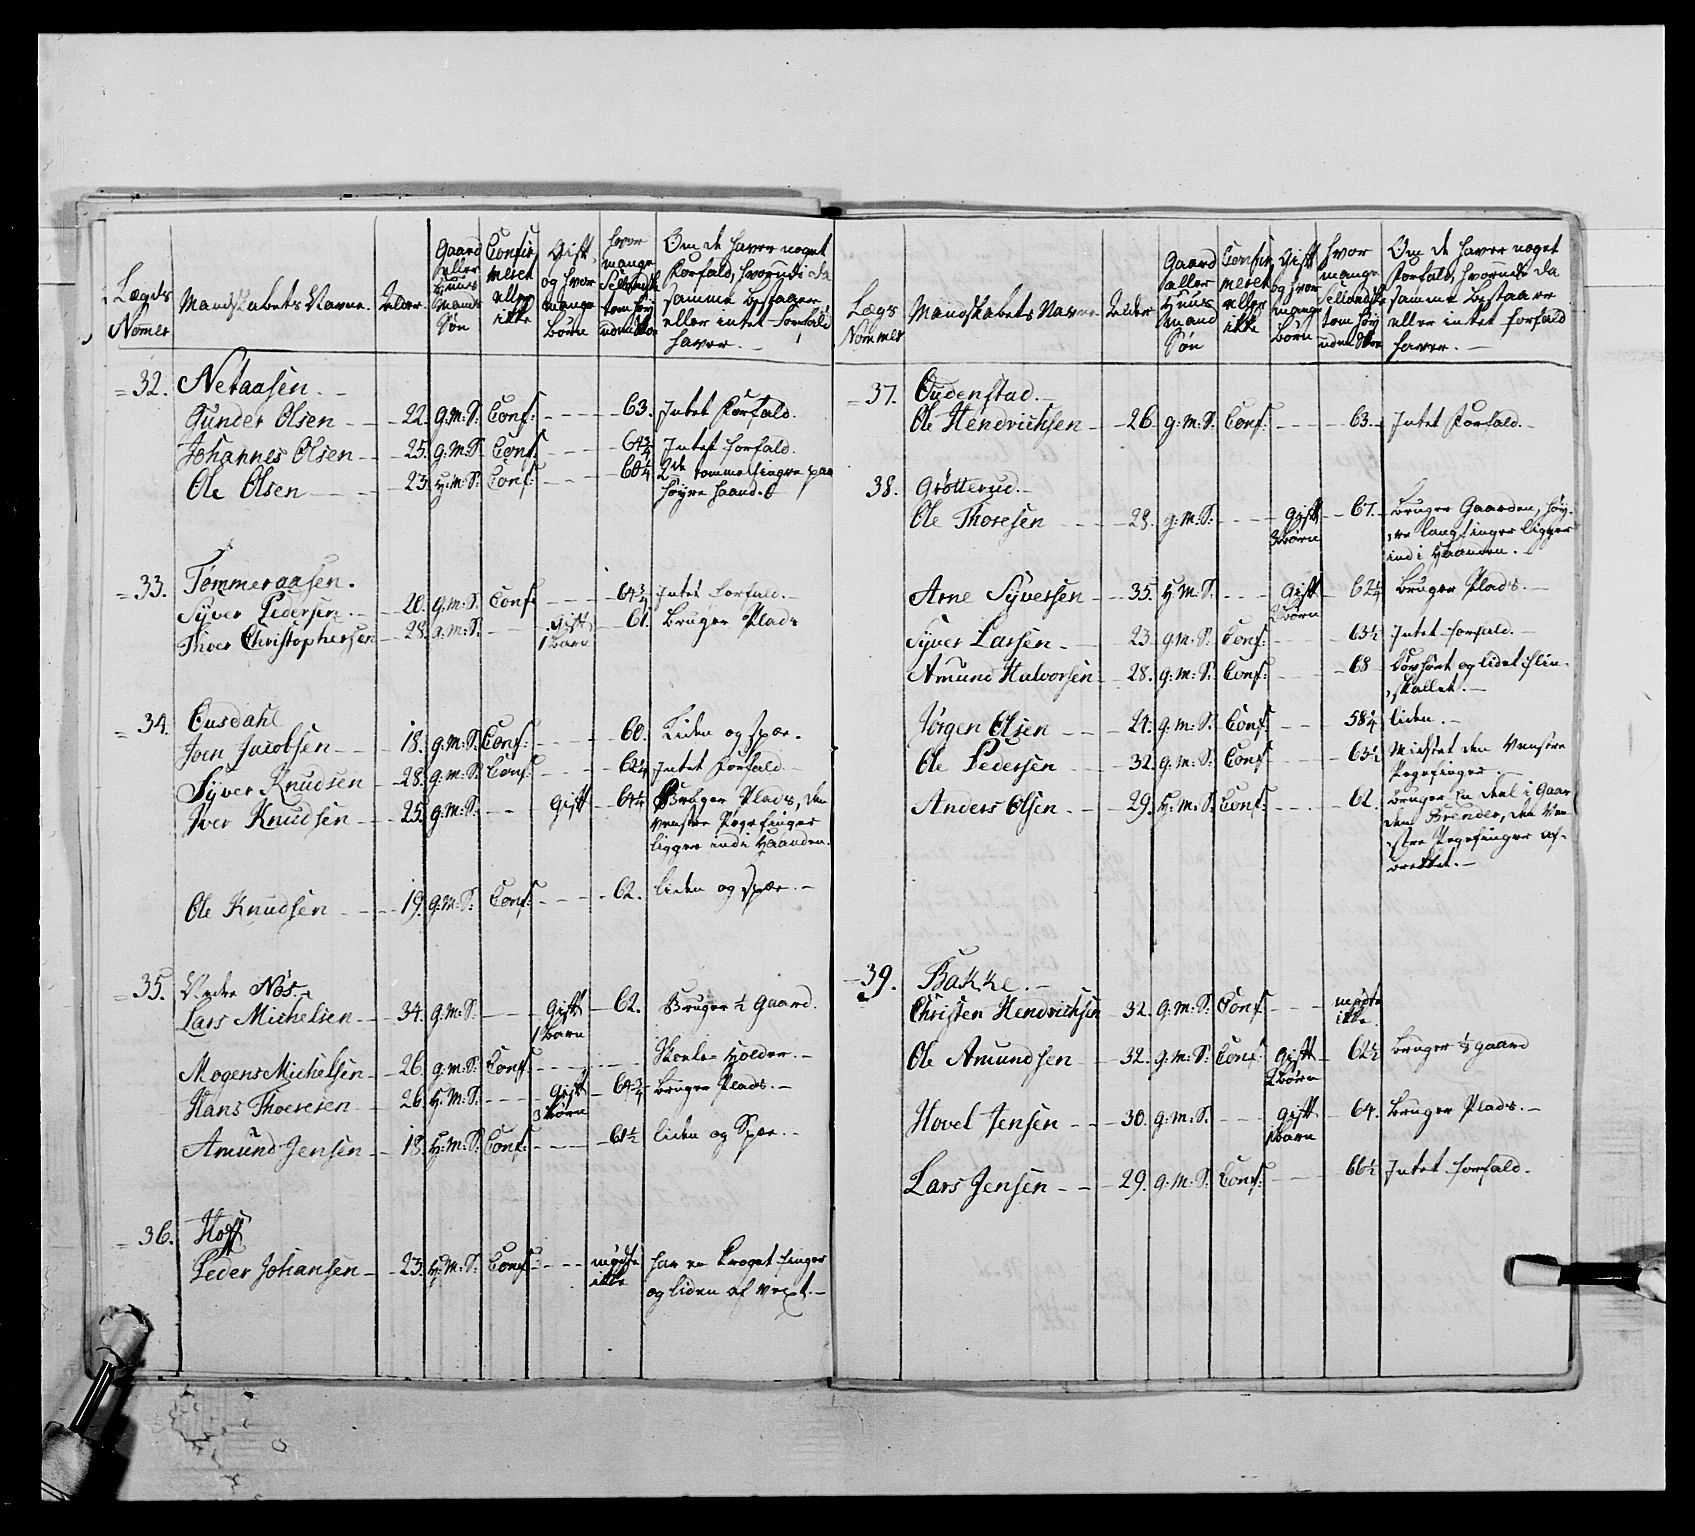 Lægds Nomer | Mandskabets Navne. | Alder. | Gaard eller Huus Mands Søn | Confirmeret eller ikke | Gift og hvor mange Børn | hvor mange Sellandske tommer høy uden Skoe | Om de haver noget Forfald, hvorudi da samme bestaaer eller intet Forfald haver. —
32. Netaasen. —
Gunder Olsen — 22. g:m:S. Conf: — 63. Intet Forfald.
Johannes Olsen — 25. g:M:S. Conf: — 64¾ Intet forfald.
Ole Olsen — 23. H:M:S. Conf: — 60¼ 2de tommelfingre paa
høyre haand.
33. Tømmeraasen.
Syver Pedersen — 20. g:m:S. Conf: — 64¾ Intet forfald.
Thoer Christophersen — 28. g:m:S. — gift 1 barn — 61. Bruger Plads
34. Eusdahl
Joen Jacobsen — 18. g:M:S. Conf: — 60. Liden og spæ. —
Syver Knudsen — 28. g:m:S. Conf: — 62¼ Intet Forfald —
Iver Knudsen — 25. g:m:S. — gift — 64¼ Bruger Plads, den
venstre Pegefinger
ligger ind i Haanden.
Ole Knudsen — 19. g:M:S. Conf: — 62. liden og spæ. —
35. Nedre Nøs. —
Lars Michelsen — 34. g:m:S. — gift 1 barn — 62. Bruger ½ gaard.
Mogens Michelsen — 26. g:m:S. Conf: — Skole Holder. —
Hans Thoresen — 26. H:M:S. — gift 3 børn — 64¾ bruger Plads. —
Amund Jensen — 18. H:M:S. Conf: — 61½ liden og Spæ. —
36. Hoff
Peder Johansen — 23. H:M:S. Conf: — mødte ikke har en Kroget finger
og liden af Vext. —
Lægs Nommer | Mandskabets Navne | Alder | Gaard eller Huus mand Søn | Confirmeret eller ikke | Gift og hvor mange Børn | hvor mange Sellandske tom høy uden Skoe | Om de haver noget Forfald, hvorudi da samme bestaaer eller intet forfald haver. —
37. Oudenstad. —
Ole Hendrichsen — 26 g:m:S. Conf: — 63 — Intet Forfald. —
38. Grøtterud. —
Ole Thoresen — 28. g:m:S: — gift 3 børn — 67. bruger Gaarden, høy-
re langfinger ligger
ind i Haanden. —
Arne Syversen — 35. H:M:S. — gift 2 børn — 62¼ bruger Plads. —
Syver Larsen — 23. g:m:S: Conf: — 63½ Intet forfald. —
Amund Halvorsen — 28. g:m:S: Conf: — 68 Døvhørt og lidet flin-
skallet. —
Jørgen Olsen — 21. g:m:S: Conf: — 58¼ liden. —
Ole Pedersen — 32. g:m:S: Conf — 63½ Mistet den Venstre
Pegefinger
Anders Olsen — 29. H:m:S. Conf: — 62. bruger En deel i Gaar
den Brender, den Ven-
stre Pegefinger af-
39. Bakke. —
Christen Hendrichsen 32. g:M:S. Conf: — mødte ikke
Ole Amundsen — 32. g:m:S: Conf: gift 2 børn — 62½ bruger ½ gaard
Hovel Jensen — 30. g:m:S. — gift 1 barn — 64. bruger Plads. —
Lars Jensen — 29. g:M:S: Conf: — 66½ Intet forfald.